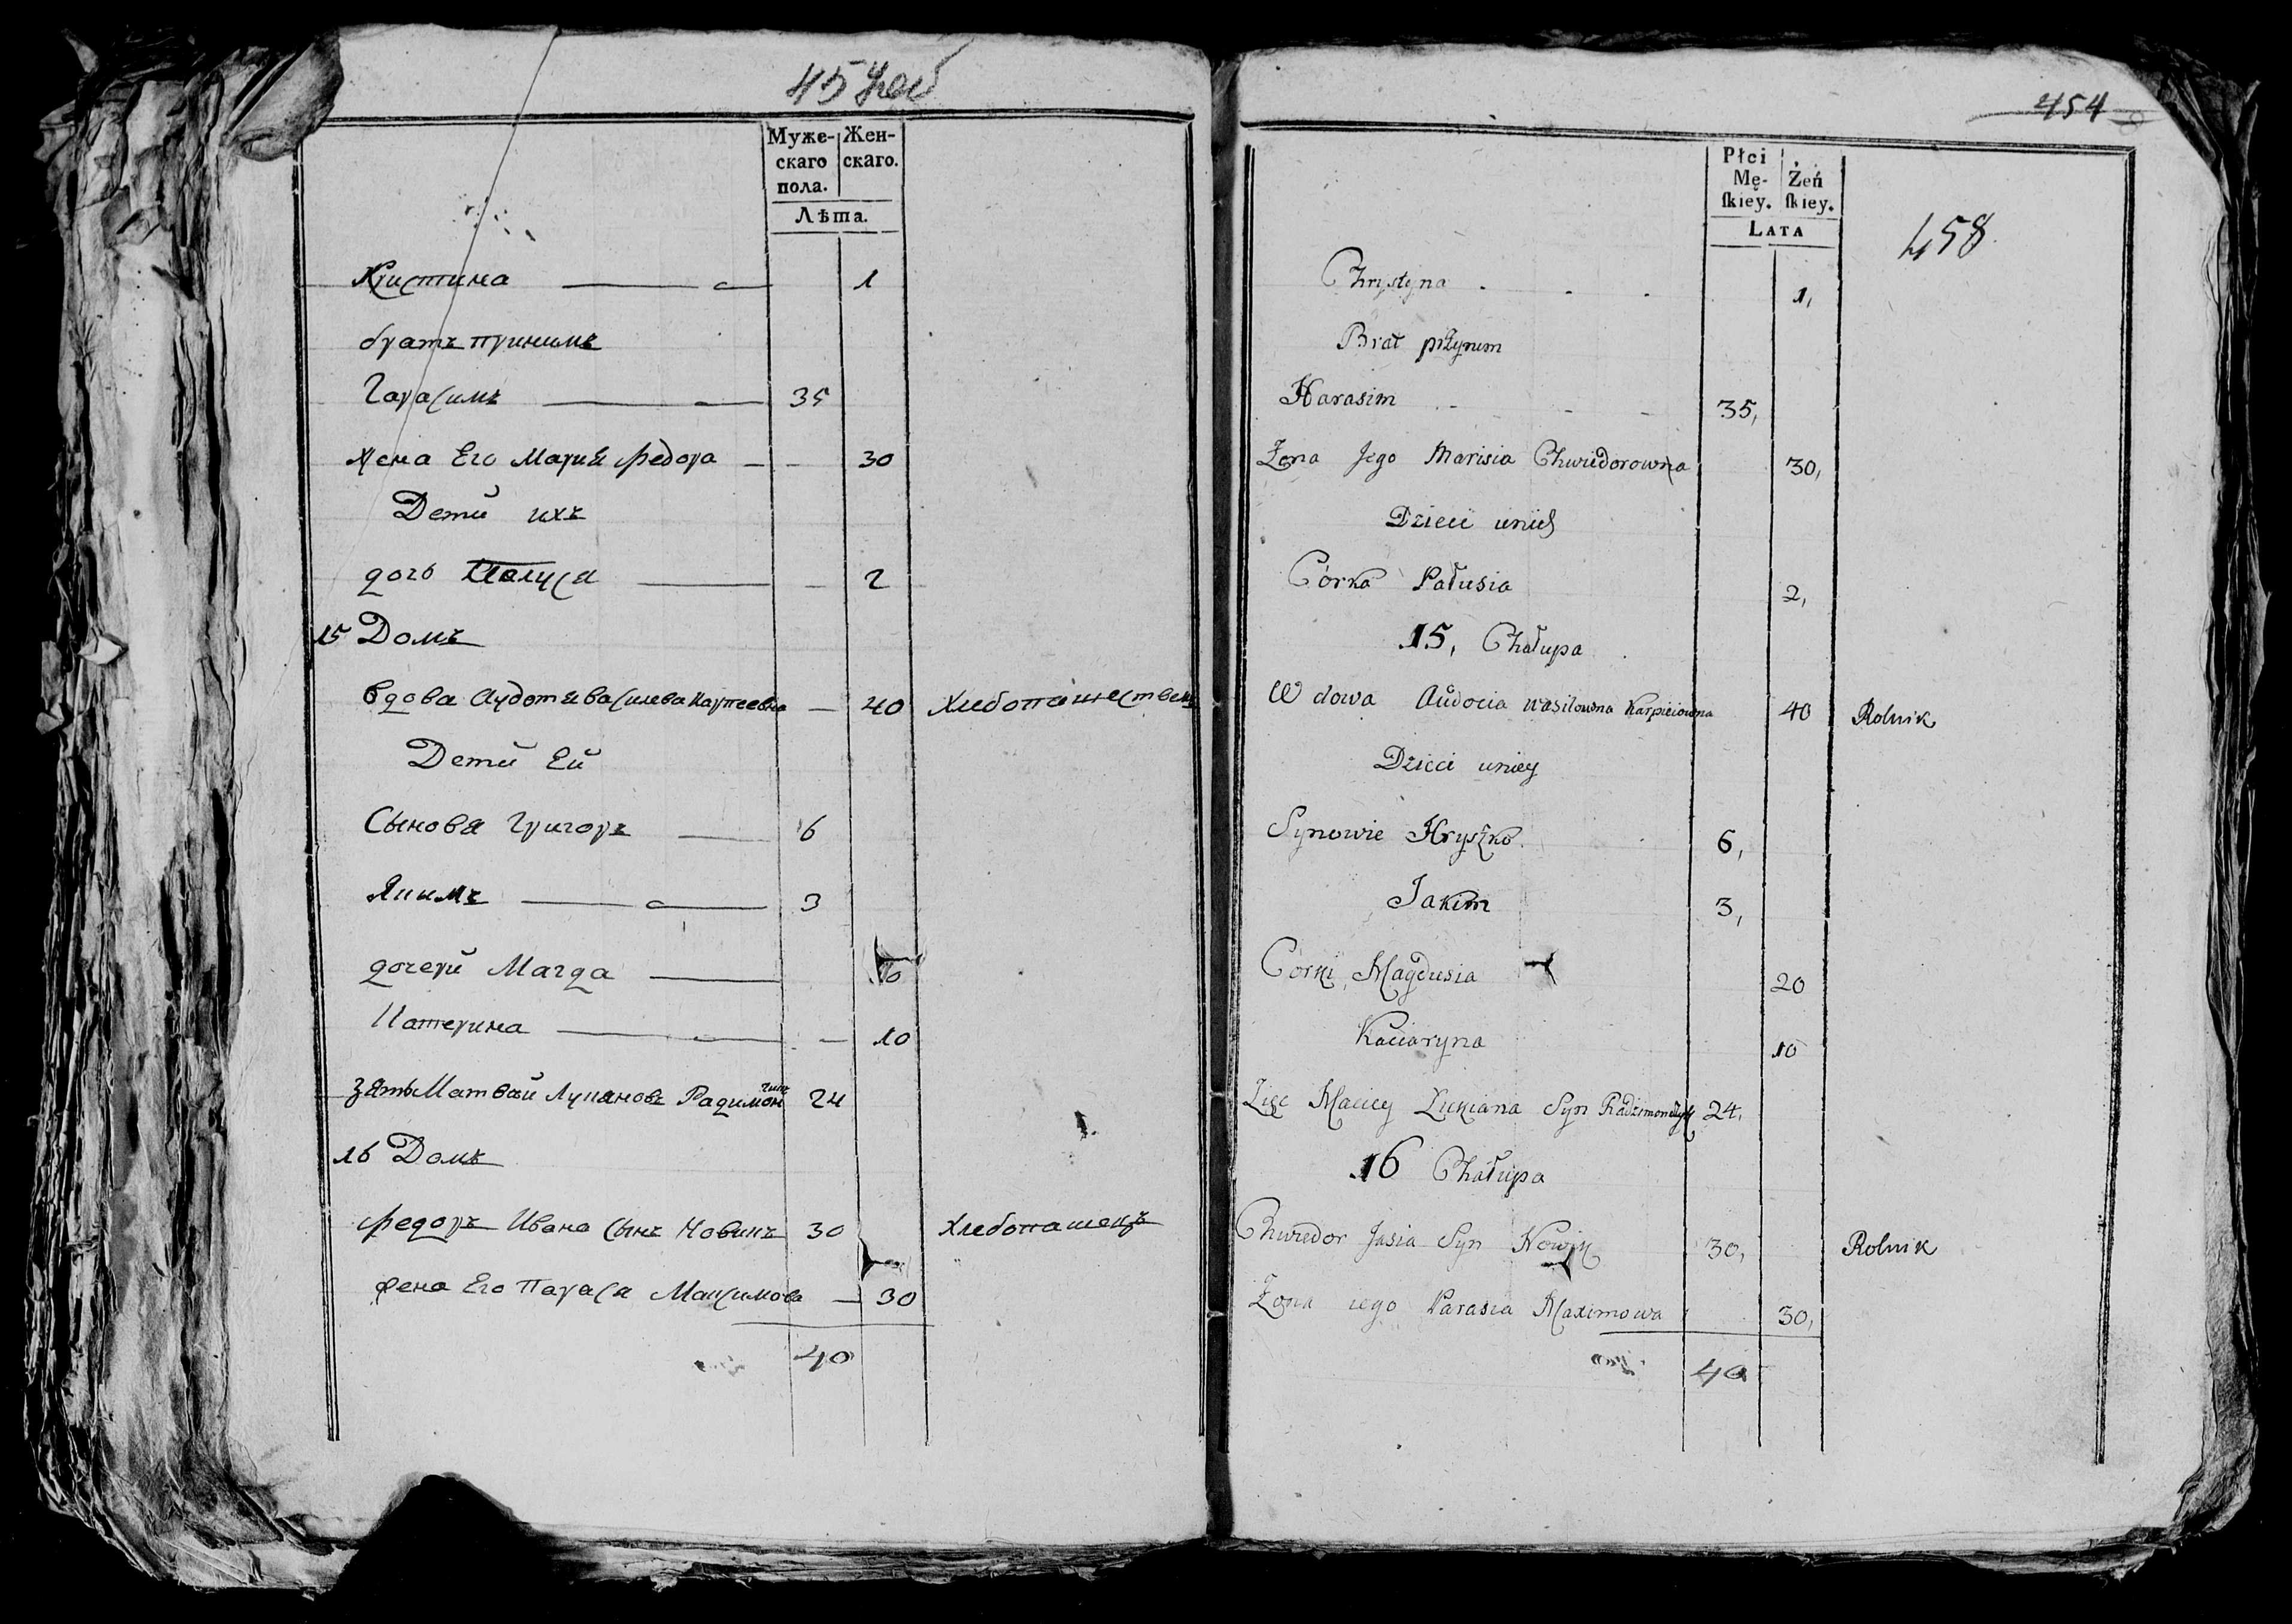 Муже-
скаго
пола.
Жен-
скаго.
Лѣта.
Кристина 1
братъ принимъ
Гарасимъ 35
жена Его Марія Федора 30
Дети ихъ
дочь Палуся 2
15 Домъ
вдова Аудотя Василева Карпеевна 40 Хлебопашествен
Дети Ей
Сыновя Григоръ 6
Якимъ 3
дочери Магда
Катерина 10
зять Матвѣй Лукяновъ Радимончикъ 24
16 Домъ
Федоръ Ивана Сынъ Новикъ 30 Хлебопашецъ
жена Его Парася Максимова 30
40
454
Płci
Mę-
ſkiey.
Żeń
ſkiey.
LATA
458
Chrystyna 1,
Brat przynim
Harasim 35,
Żona Jego Marisia Chwiedorowna 30,
Dzieci unich
Córka Pałusia 2,
15, Chałupa
Wdowa Audocia wasilowna Karpieiowna 40 Rolnik
Dzieci uniey
Synowie Hryszko 6,
Jakim 3,
Córki Magdusia 20
Kaciaryna 10
Zięć Maciey Łukiana Syn Radzimonczyk 24,
16 Chałupa
Chwiedor Jasia Syn Nowik 30, Rolnik
Żona iego Parasia Maximowa 30,
40